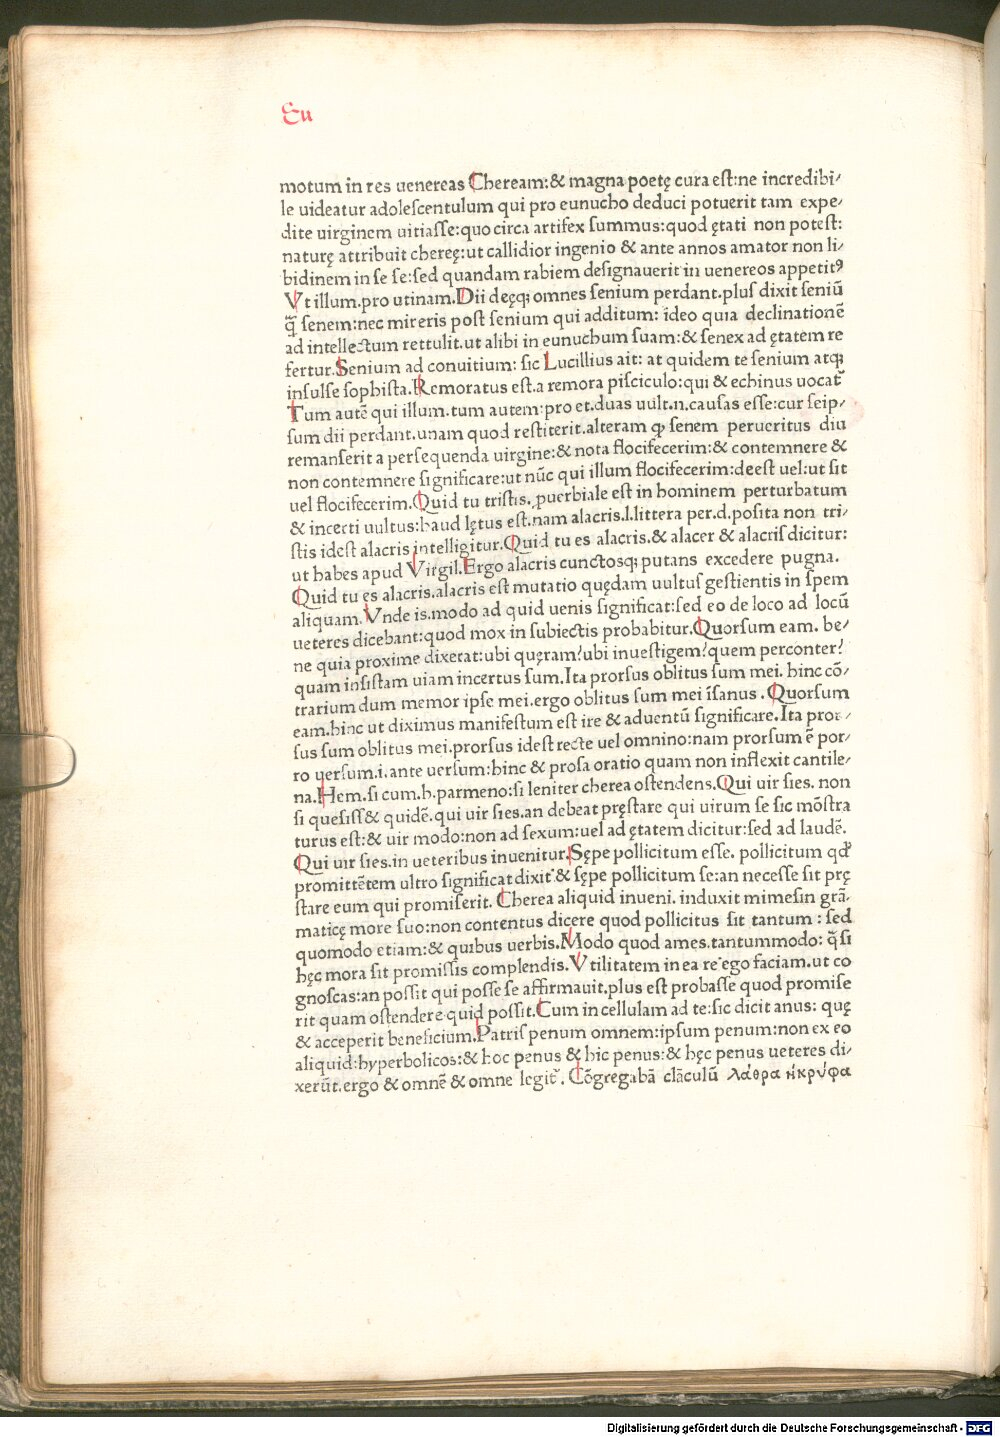 Eu
motum in res uenereas Cheream:& magna poetę cura est:ne incredibi⸗
le uideatur adolescentulum qui pro eunucho deduci potuerit tam expe⸗
dite uirginem uitiasse:quo circa artifex summus:quod ętati non potest:
naturę attribuit chereę:ut callidior ingenio & ante annos amator non li⸗
bidinem in se se:sed quandam rabiem designauerit in uenereos appetitꝰ
Vt illum.pro utinam.Dii deęqꝫ omnes senium perdant.plus dixit seniū
q̄ senem:nec mireris post senium qui additum: ideo quia declinationē
ad intellectum rettulit.ut alibi in eunuchum suam:& senex ad ętatem re
fertur.Senium ad conuitium: sic Lucillius ait: at quidem te senium atqꝫ
insulse sophista.Remoratus est.a remora pisciculo:qui & echinus uocat᷑
Tum autē qui illum.tum autem:pro et.duas uult.n.causas esse:cur seip⸗
sum dii perdant.unam quod restiterit.alteram ꝙ senem perueritus diu
remanserit a persequenda uirgine:& nota flocifecerim:& contemnere &
non contemnere significare:ut nūc qui illum flocifecerim:deest uel:ut sit
uel flocifecerim.Quid tu tristis.ꝓuerbiale est in hominem perturbatum
& incerti uultus:haud lętus est.nam alacris.l.littera per.d.posita non tri⸗
stis idest alacris intelligitur.Quid tu es alacris.& alacer & alacris dicitur:
ut habes apud Virgil.Ergo alacris cunctosqꝫ putans excedere pugna.
Quid tu es alacris.alacris est mutatio quędam uultus gestientis in spem
aliquam.Vnde is.modo ad quid uenis significat:sed eo de loco ad locū
ueteres dicebant:quod mox in subiectis probabitur.Quorsum eam. be⸗
ne quia proxime dixerat:ubi quęram?ubi inuestigem?quem perconter?
quam insistam uiam incertus sum.Ita prorsus oblitus sum mei. hinc cō⸗
trarium dum memor ipse mei.ergo oblitus sum mei īsanus . Quorsum
eam.hinc ut diximus manifestum est ire & aduentū significare.Ita pror⸗
sus sum oblitus mei.prorsus idest recte uel omnino:nam prorsum ē por⸗
ro uersum.i.ante uersum:hinc & prosa oratio quam non inflexit cantile⸗
na.Hem.si cum.h.parmeno:si leniter cherea ostendens.Qui uir sies. non
si quesiss& quidē.qui uir sies.an debeat pręstare qui uirum se sic mōstra
turus est:& uir modo:non ad sexum:uel ad ętatem dicitur:sed ad laudē.
Qui uir sies.in ueteribus inuenitur.Sępe pollicitum esse. pollicitum qđ
promittētem ultro significat dixit:& sępe pollicitum se:an necesse sit prę
stare eum qui promiserit. Cherea aliquid inueni. induxit mimesin grā⸗
maticę more suo:non contentus dicere quod pollicitus sit tantum : sed
quomodo etiam:& quibus uerbis.Modo quod ames.tantummodo: q̄si
hęc mora sit promissis complendis.Vtilitatem in ea re ego faciam.ut co
gnoscas:an possit qui posse se affirmauit.plus est probasse quod promise
rit quam ostendere quid possit.Cum in cellulam ad te:sic dicit anus: quę
& acceperit beneficium.Patris penum omnem:ipsum penum:non ex eo
aliquid:hyperbolicos:& hoc penus & hic penus:& hęc penus ueteres di⸗
xerūt.ergo & omnē & omne legit᷑. Cōgregabā clāculū λάθρα ἢ κρύφα
Digitalisierung gefördert durch die Deutsche Forschungsgemeinschaft - DFG